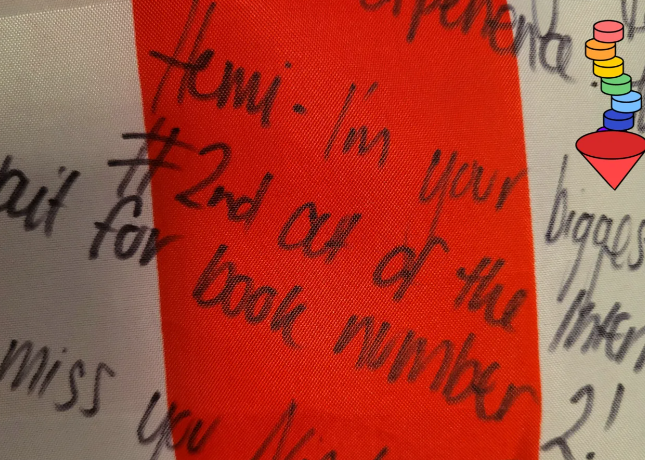 experience
Hemi- I'm your bigges
#2nd out of the Inter
wait for book number 2!
miss you